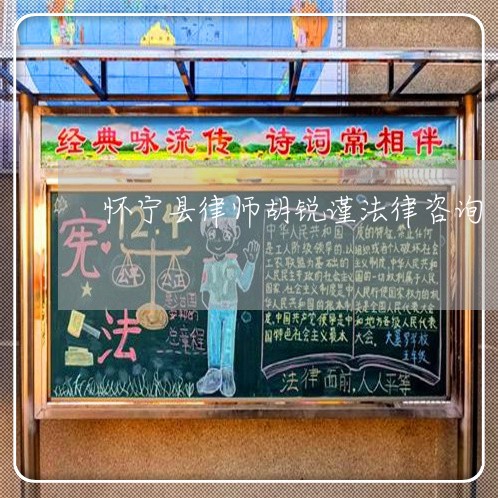 经典咏流传 诗词常相伴
怀宁县律师胡锐谨法律咨询
12.4
宪法
公平
公正
总章程
中华人民共和国
是工人阶级领导的,以
工农联盟为基础的
人民民主专政的社会主义
国家,社会主义制度是中
华人民共和国的根本制
度,中国共产党领导是中
国特色社会主义最本
质的特征,禁止任何
组织或者个人破坏社会
主义制度,中华人民共和
国的一切权利属于人民,
人民行使国家权力的机
关是全国人民代表大会
和地方各级人民代表
大会。
五年级
法律面前,人人平等